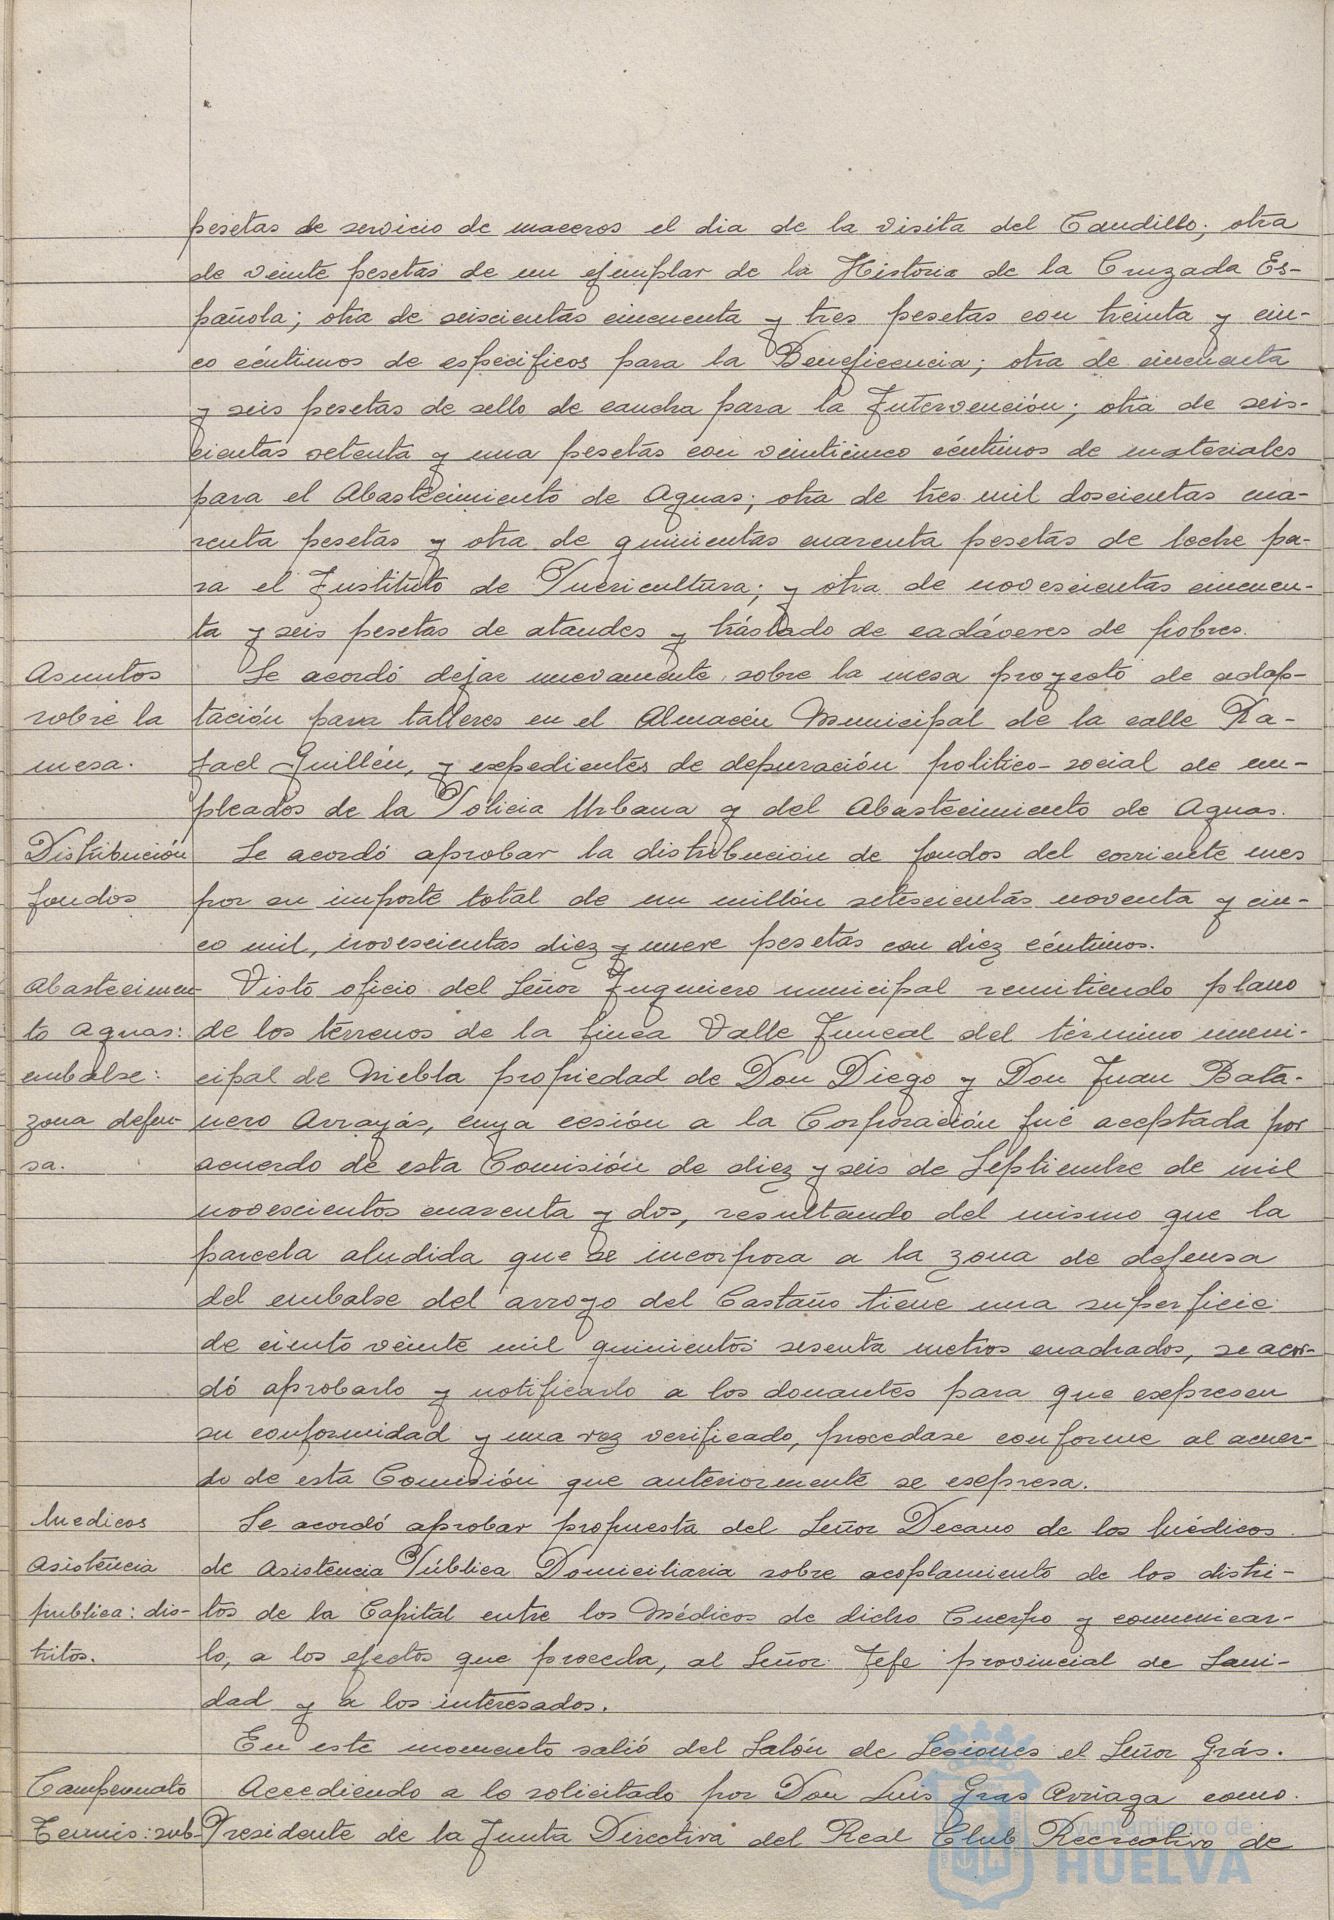 pesetas de servicio de maceros el dia de la visita del Caudillo; otra
de veinte pesetas de un ejemplar de la Historia de la Cruzada Es-
pañola; otra de seiscientas cincuenta y tres pesetas con treinta y cin-
co céntimos de especificos para la Beneficencia; otra de cincuenta
y seis pesetas de sello de caucho para la Intervención; otra de seis-
cientas setenta y una pesetas con veinticinco céntimos de materiales
para el Abastecimiento de Aguas; otra de tres mil doscientas cua-
renta pesetas y otra de quinientas cuarenta pesetas de leche pa-
ra el Instituto de Puericultura; y otra de novescientas cincuen-
ta y seis pesetas de ataudes y tráslado de cadáveres de pobres.
Asuntos
sobre la
mesa.
Se acordó dejar nuevamente sobre la mesa proyecto de adap-
tación para talleres en el Almacén Municipal de la calle Ra-
fael Guillén, y expedientes de depuración politico-social de em-
pleados de la Policia Urbana y del Abastecimiento de Aguas.
Distribución
fondos
Se acordó aprobar la distribucion de fondos del corriente mes
por su importe total de un millón setescientas noventa y cin-
co mil, novescientas diez y nueve pesetas con diez céntimos.
Abastecimien-
to aguas:
embalse:
zona defen-
sa.
Visto oficio del Señor Ingeniero municipal remitiendo plano
de los terrenos de la finca Valle Juncal del término muni-
cipal de Niebla propiedad de Don Diego y Don Juan Bata-
nero Arrayás, cuya cesión a la Corporación fué aceptada por
acuerdo de esta Comisión de diez y seis de Septiembre de mil
novescientos cuarenta y dos, resultando del mismo que la
parcela aludida que se incorpora a la zona de defensa
del embalse del arroyo del Castaño tiene una superficie
de ciento veinte mil quinientos sesenta metros cuadrados, se acor-
dó aprobarlo y notificarlo a los donantes para que expresen
su conformidad y una vez verificado, procedase conforme al acuer-
do de esta Comisión que anteriormente se expresa.
Medicos
asistencia
publica: dis-
tritos.
Se acordó aprobar propuesta del Señor Decano de los Médicos
de Asistencia Pública Domiciliaria sobre acoplamiento de los distri-
tos de la Capital entre los Médicos de dicho Cuerpo y comunicar-
lo, a los efectos que proceda, al Señor Jefe provincial de Sani-
dad y a los interesados.
En este momento salió del Salón de Sesiones el Señor Grás.
Campeonato
Tennis: sub-
Accediendo a lo solicitado por Don Luis Gras Arriaga como
Presidente de la Junta Directiva del Real Club Recreativo de
Ayuntamiento de
HUELVA